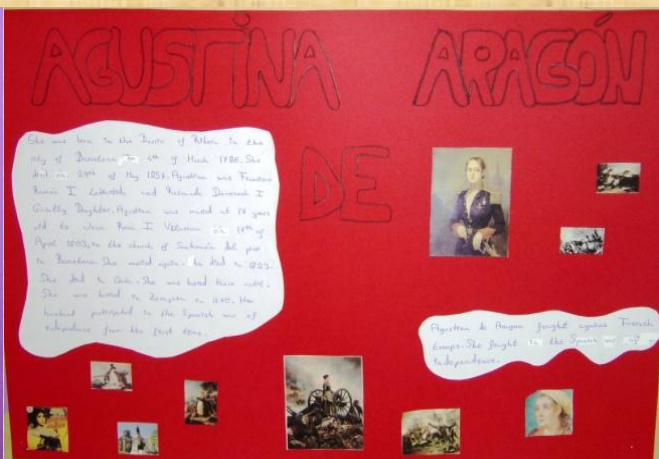 AGUSTINA ARAGÓN
DE
She was born in the Barrio of Ribera in the
city of Barcelona in 4th of March 1786. She
died in 29th of May 1857. Agustina was Francisco
Ramón I and Raimunda Doménech I
Daughter. Agustina was married at 17 years
old to Joan Roca I in 17th of
April 1803, in the church of
in Barcelona. She married again. he died in 1823.
She died in Ceuta. She was buried there until.
She was buried in Zaragoza in Her
husband participated in the Spanish war of
independence from the first time.
Agustina de Aragon fought against French
troops. She fought in the Spanish war of
Independence.